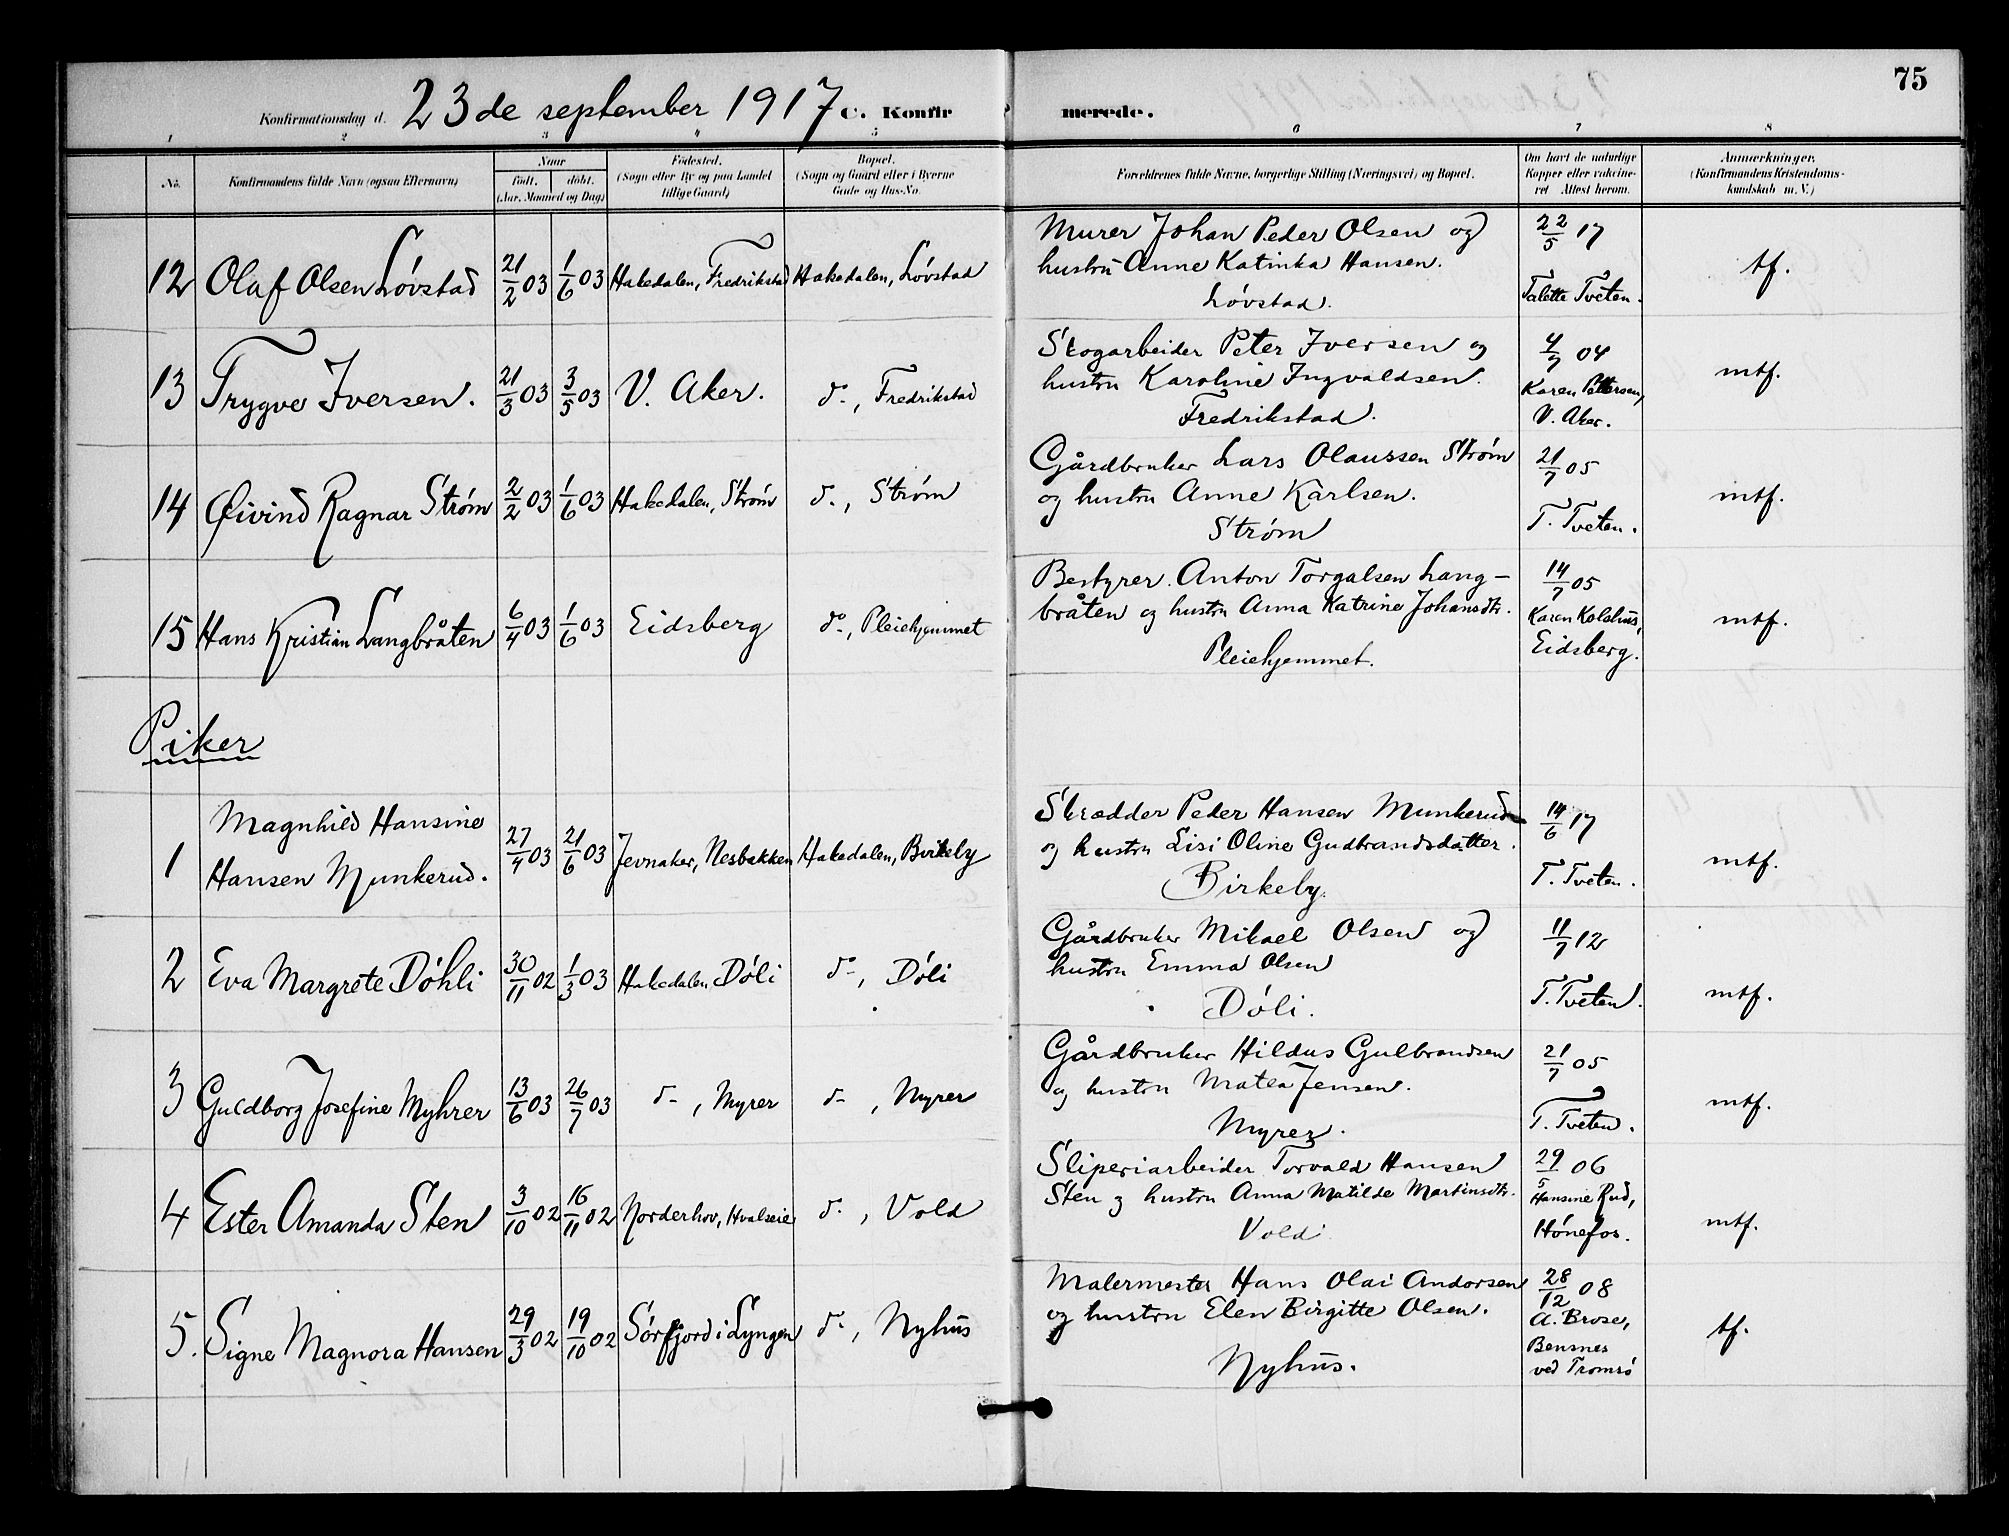 75
Konfirmationsdag d. 23de september 1917 C. Konfirmerede.
1 2 3 4 5 6 7 8
No. Konfirmandens fulde Navn (ogsaa Efternavn) Naar født. døbt. (Aar, Maaned og Dag) Fødested. (Sogn eller By og paa Landet tillige Gaard) Bopæl. (Sogn og Gaard eller i Byerne Gade og Hus-No. Forældrenes fulde Navne, borgerlige Stilling (Næringsvei) og Bopæl. Om havt de naturlige Kopper eller vakcineret Attest herom. Anmærkninger. (Konfirmandens Kristendomskundskab m. V.)
12 Olaf Olsen Lövstad 21/2 03 1/6 03 Hakedalen, Fredrikstad Hakedalen, Lövstad
Murer Johan Peder Olsen og
hustru Anne Katinka Hansen.
Lövstad.
22/5 17
Talette Tveten.
tf.
13 Trygve Iversen. 21/3 03 3/5 03 V. Aker. do, Fredrikstad
Skogarbeider Peter Iversen og
hustru Karoline Ingvaldsen.
Fredrikstad.
4/7 04
Karen Pettersen,
V. Aker.
mtf.
14 Øivind Ragnar Strøm 2/2 03 1/6 03 Hakedalen, Strøm do., Strøm
Gårdbruker Lars Olaussen Strøm
og hustru Anne Karlsen.
Strøm
21/7 05
T. Tveten.
mtf.
15 Hans Kristian Langbråten 6/4 03 1/6 03 Eidsberg do., Pleiehjemmet
Bestyrer Anton Torgalsen Lang-
bråten og hustru Anna Katrine Johansdtr.
Pleiehjemmet.
14/7 05
Karen Kolshus,
Eidsberg.
mtf.
Piker
1 Magnhild Hansine
Hansen Munkerud. 27/4 03 21/6 03 Jevnaker, Nesbakken Hakedalen, Birkeby
Skrædder Peder Hansen Munkerud
og hustru Lisi Oline Gudbrandsdatter.
Birkeby.
14/6 17
T. Tveten.
mtf.
2 Eva Margrete Döhli 30/11 02 1/3 03 Hakedalen Döli do, Döli
Gårdbruker Mikael Olsen og
hustru Emma Olsen
Döli.
11/7 12
T. Tveten.
mtf.
3 Guldborg Josefine Myhrer 13/6 03 26/7 03 do, Myrer do, Myrer
Gårdbruker Hildus Gulbrandsen
og hustru Matea Jensen.
Myrer.
21/7 05
T. Tveten.
mtf.
4 Ester Amanda Sten 3/10 02 16/11 02 Norderhov, Hvalseie do, Vold
Sliperiarbeider Torvald Hansen
Sten og hustru Anna Matilde Martinsdtr.
Vold
29/5 06
Hansine Rud,
Hönefos.
mtf.
5. Signe Magnora Hansen 29/3 02 19/10 02 Sörfjord i Lyngen do, Nyhus
Malermester Hans Olai Andorsen
og hustru Elen Birgitte Olsen.
Nyhus.
28/12 08
A. Brose,
Bensnes
ved Tromsö
tf.